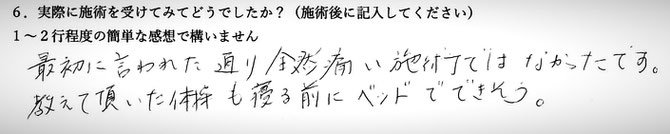 6．実際に施術を受けてみてどうでしたか？（施術後に記入してください）
1～2行程度の簡単な感想で構いません
最初に言われた通り全然痛い施術ではなかったです。
教えて頂いた体操も寝る前にベッドでできそう。